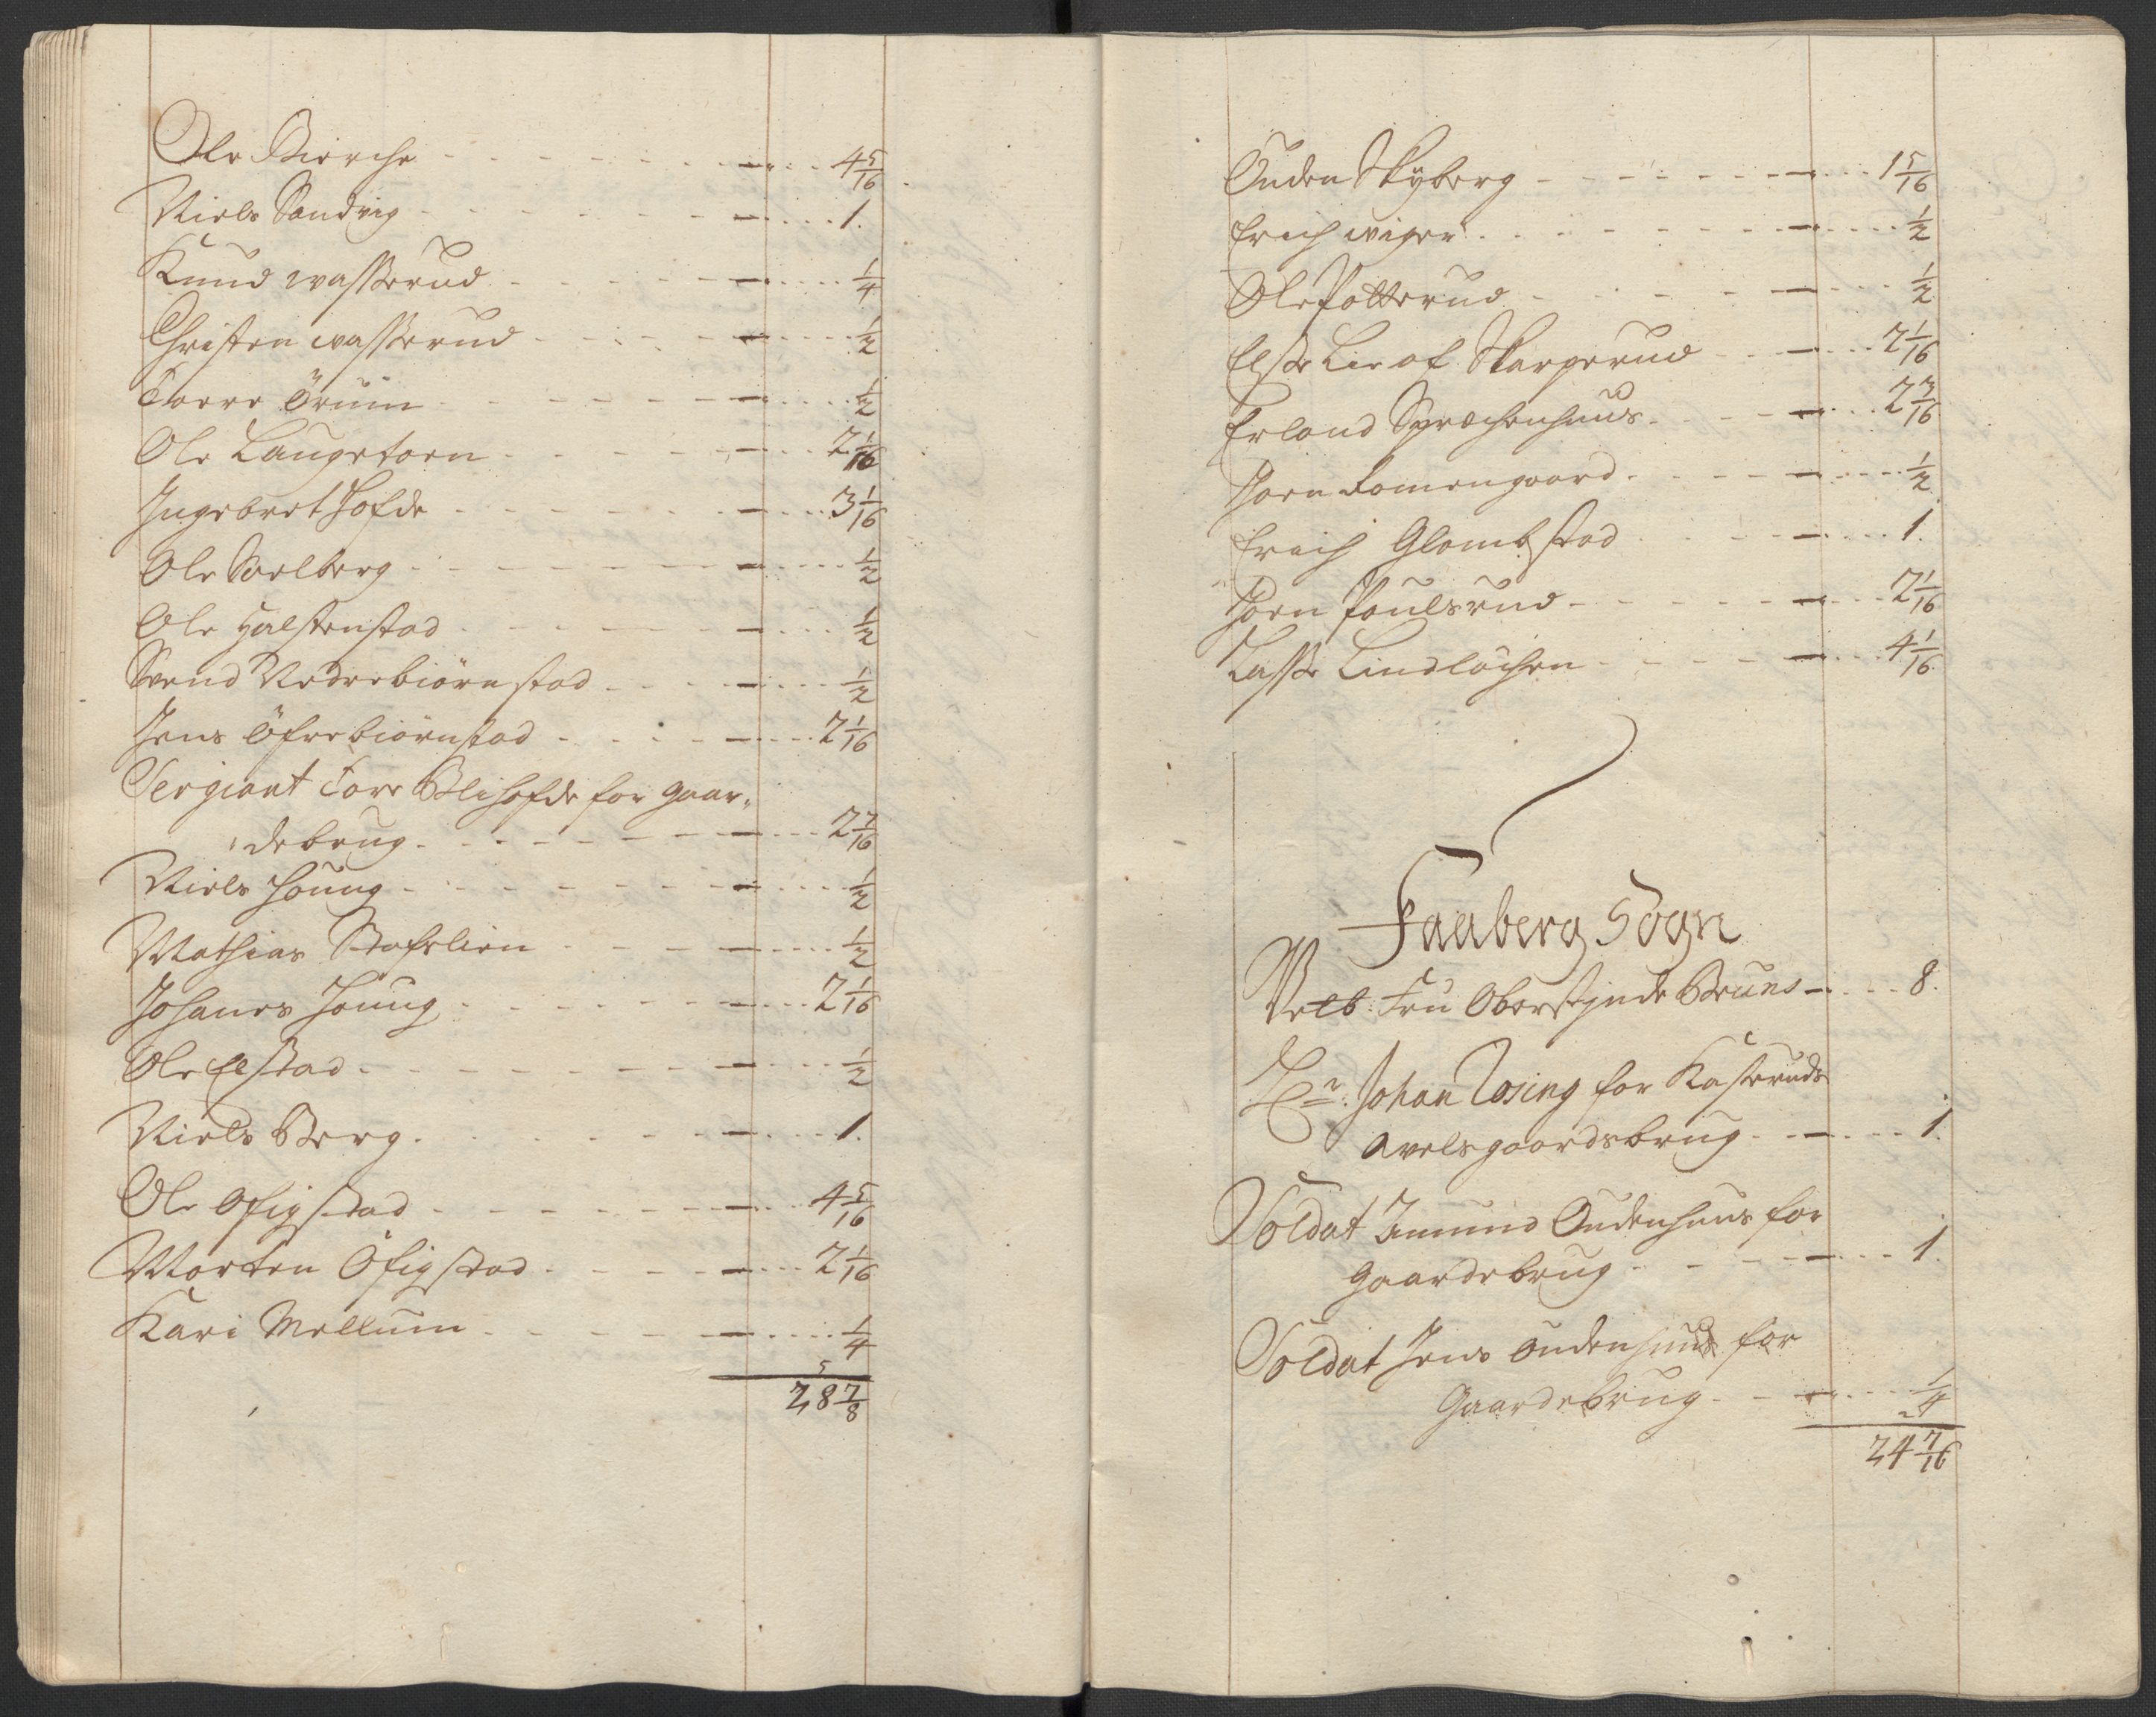 Ole Bierche - 4 5/16
Niels Sandvig - 1.
Knud wasserud - 1/4
Christen wasserud - 1/2
Torre Örüm - 1/2
Ole Laugetoen - 2 1/16
Ingebret Hofde - 3 1/16
Ole Soelberg - 1/2
Ole Halstenstad - 1/2
Svend Nedrebiörnstad - 1/2
Jens Öfrebiörnstad - 2 1/16
Sergiant Tore Blihofde for gaar„
„debrug - 2 7/16
Niels Houng - 1/2
Mathias Stafslien - 1/2
Johanes Houng - 2 1/16
Ole Elstad - 1/2
Niels Berg - 1.
Ole Ofigstad - 4 5/16
Morten Öfigstad - 2 1/16
Kari Mellum - 1/4
5
28 7/8
Ouden Skyberg - 1 5/16
Erich wiger - 1/2
Ole Potterud - 1/2
Elsse Lie af Skargerud - 2 1/16
Erland Sprochenhuus - 2 3/16
Joen Romengaard - 1/2
Erich Glombstad - 1.
Joen Poulsrud - 2 1/16
Lasse Lindlöchen - 4 1/16
Faaberg Sogn
Velb: Fru Oberstjnde Bruns - 8.
Hr: Johan Rosing for Kasteruds
Avelsgaardsbrug - 1.
Soldat Imund Oudenhuus for
Gaardebrug - 1.
Soldat Jens Oudenhuus for
Gaardebrug - 1/4
2
24 7/16